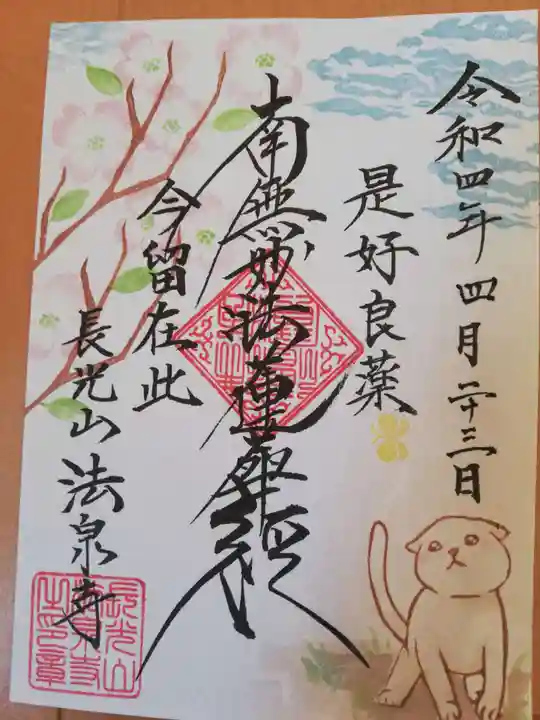 令和四年四月二十三日
是好良薬
南無妙法蓮華経
今留在此
長光山法泉寺